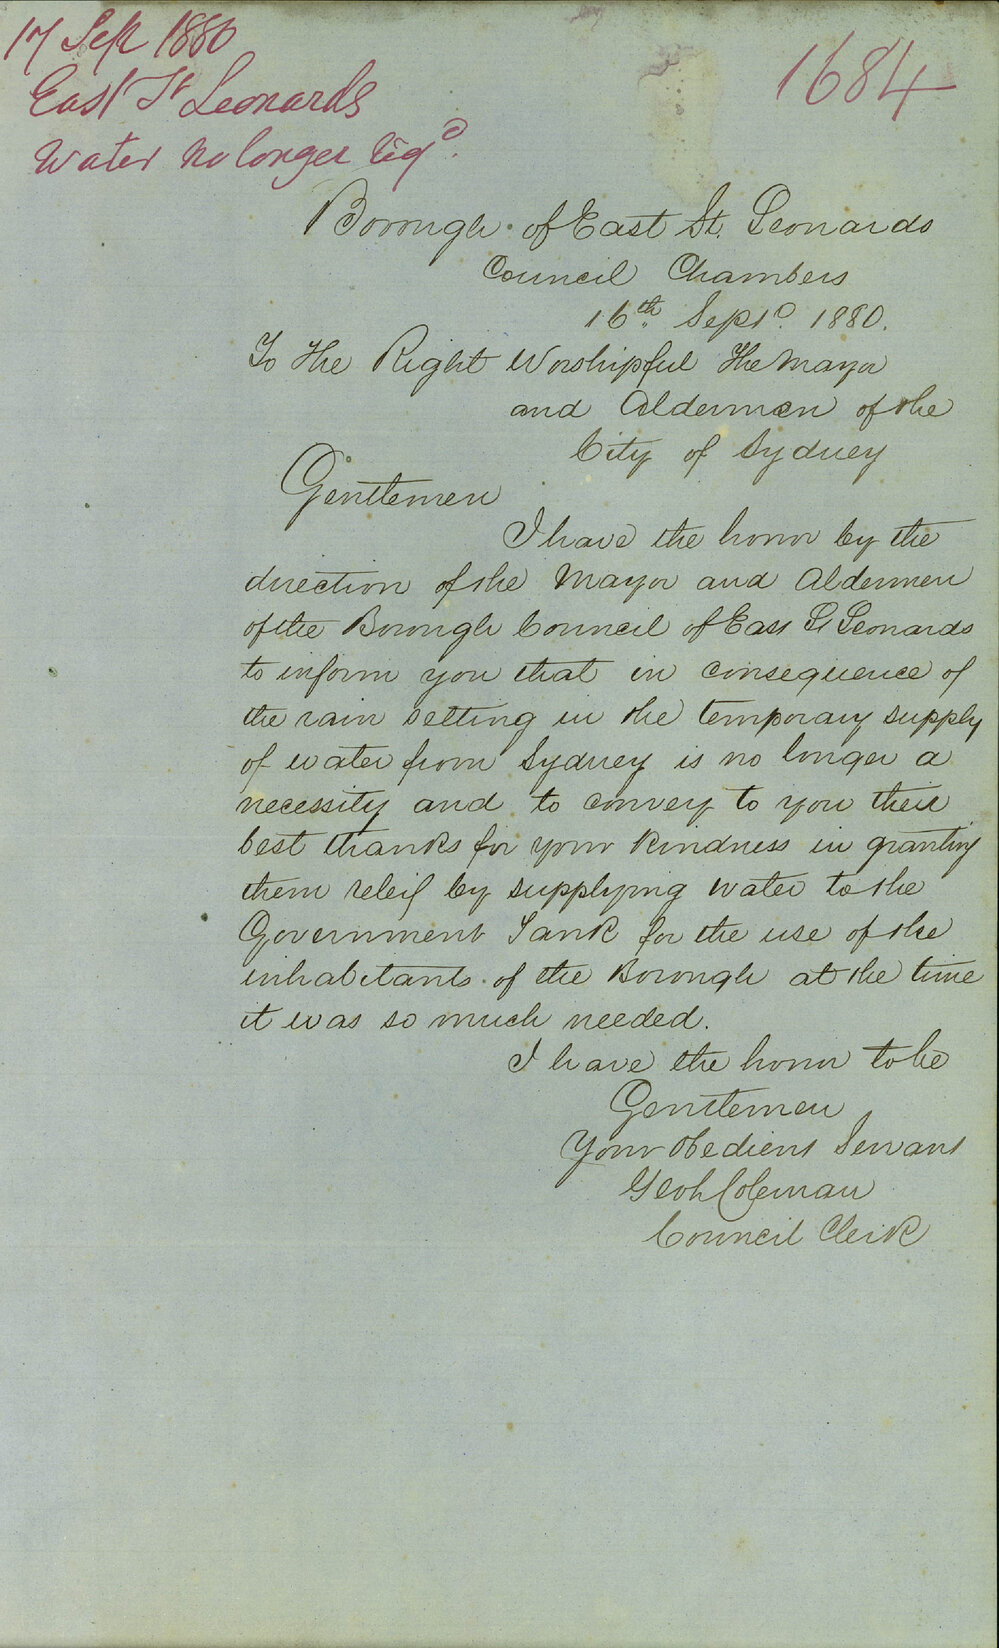 17 Sep 1880
East St Leonards
Water no longer reqd.
1684
Borough of East St. Leonards
Council Chambers
16th Sept. 1880.
To the Right Worshipful the Mayor
and Aldermen of the
City of Sydney
Gentlemen
I have the honor by the
direction of the Mayor and Aldermen
of the Borough Council of East St Leonards
to inform you that in consequence of
the rain setting in the temporary supply
of water from Sydney is no longer a
necessity and to convey to you their
best thanks for your kindness in granting
them releif by supplying water to the
Government Tank for the use of the
inhabitants of the Borough at the time
it was so much needed.
I have the honor to be
Gentlemen
Your obedient Servant
Geo H Coleman
Council Clerk